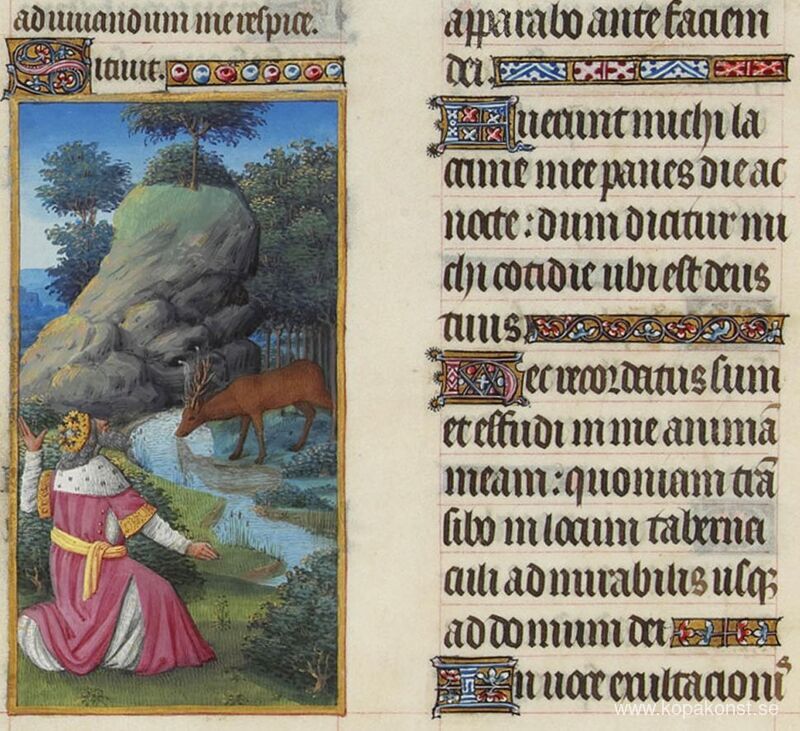 ad iuuandum me respice.
Sitiuit.
apparabo ante faciem
dei.
Fuerunt michi la
crime mee panes die ac
nocte: dum dicitur mi
chi cotidie ubi est deus
tuus
Hec recordatus sum
et effudi in me animā
meam: quoniam trā
sibo in locum taberna
culi admirabilis usq
ad domum dei
In uoce exultacionis
www.kopakonst.se